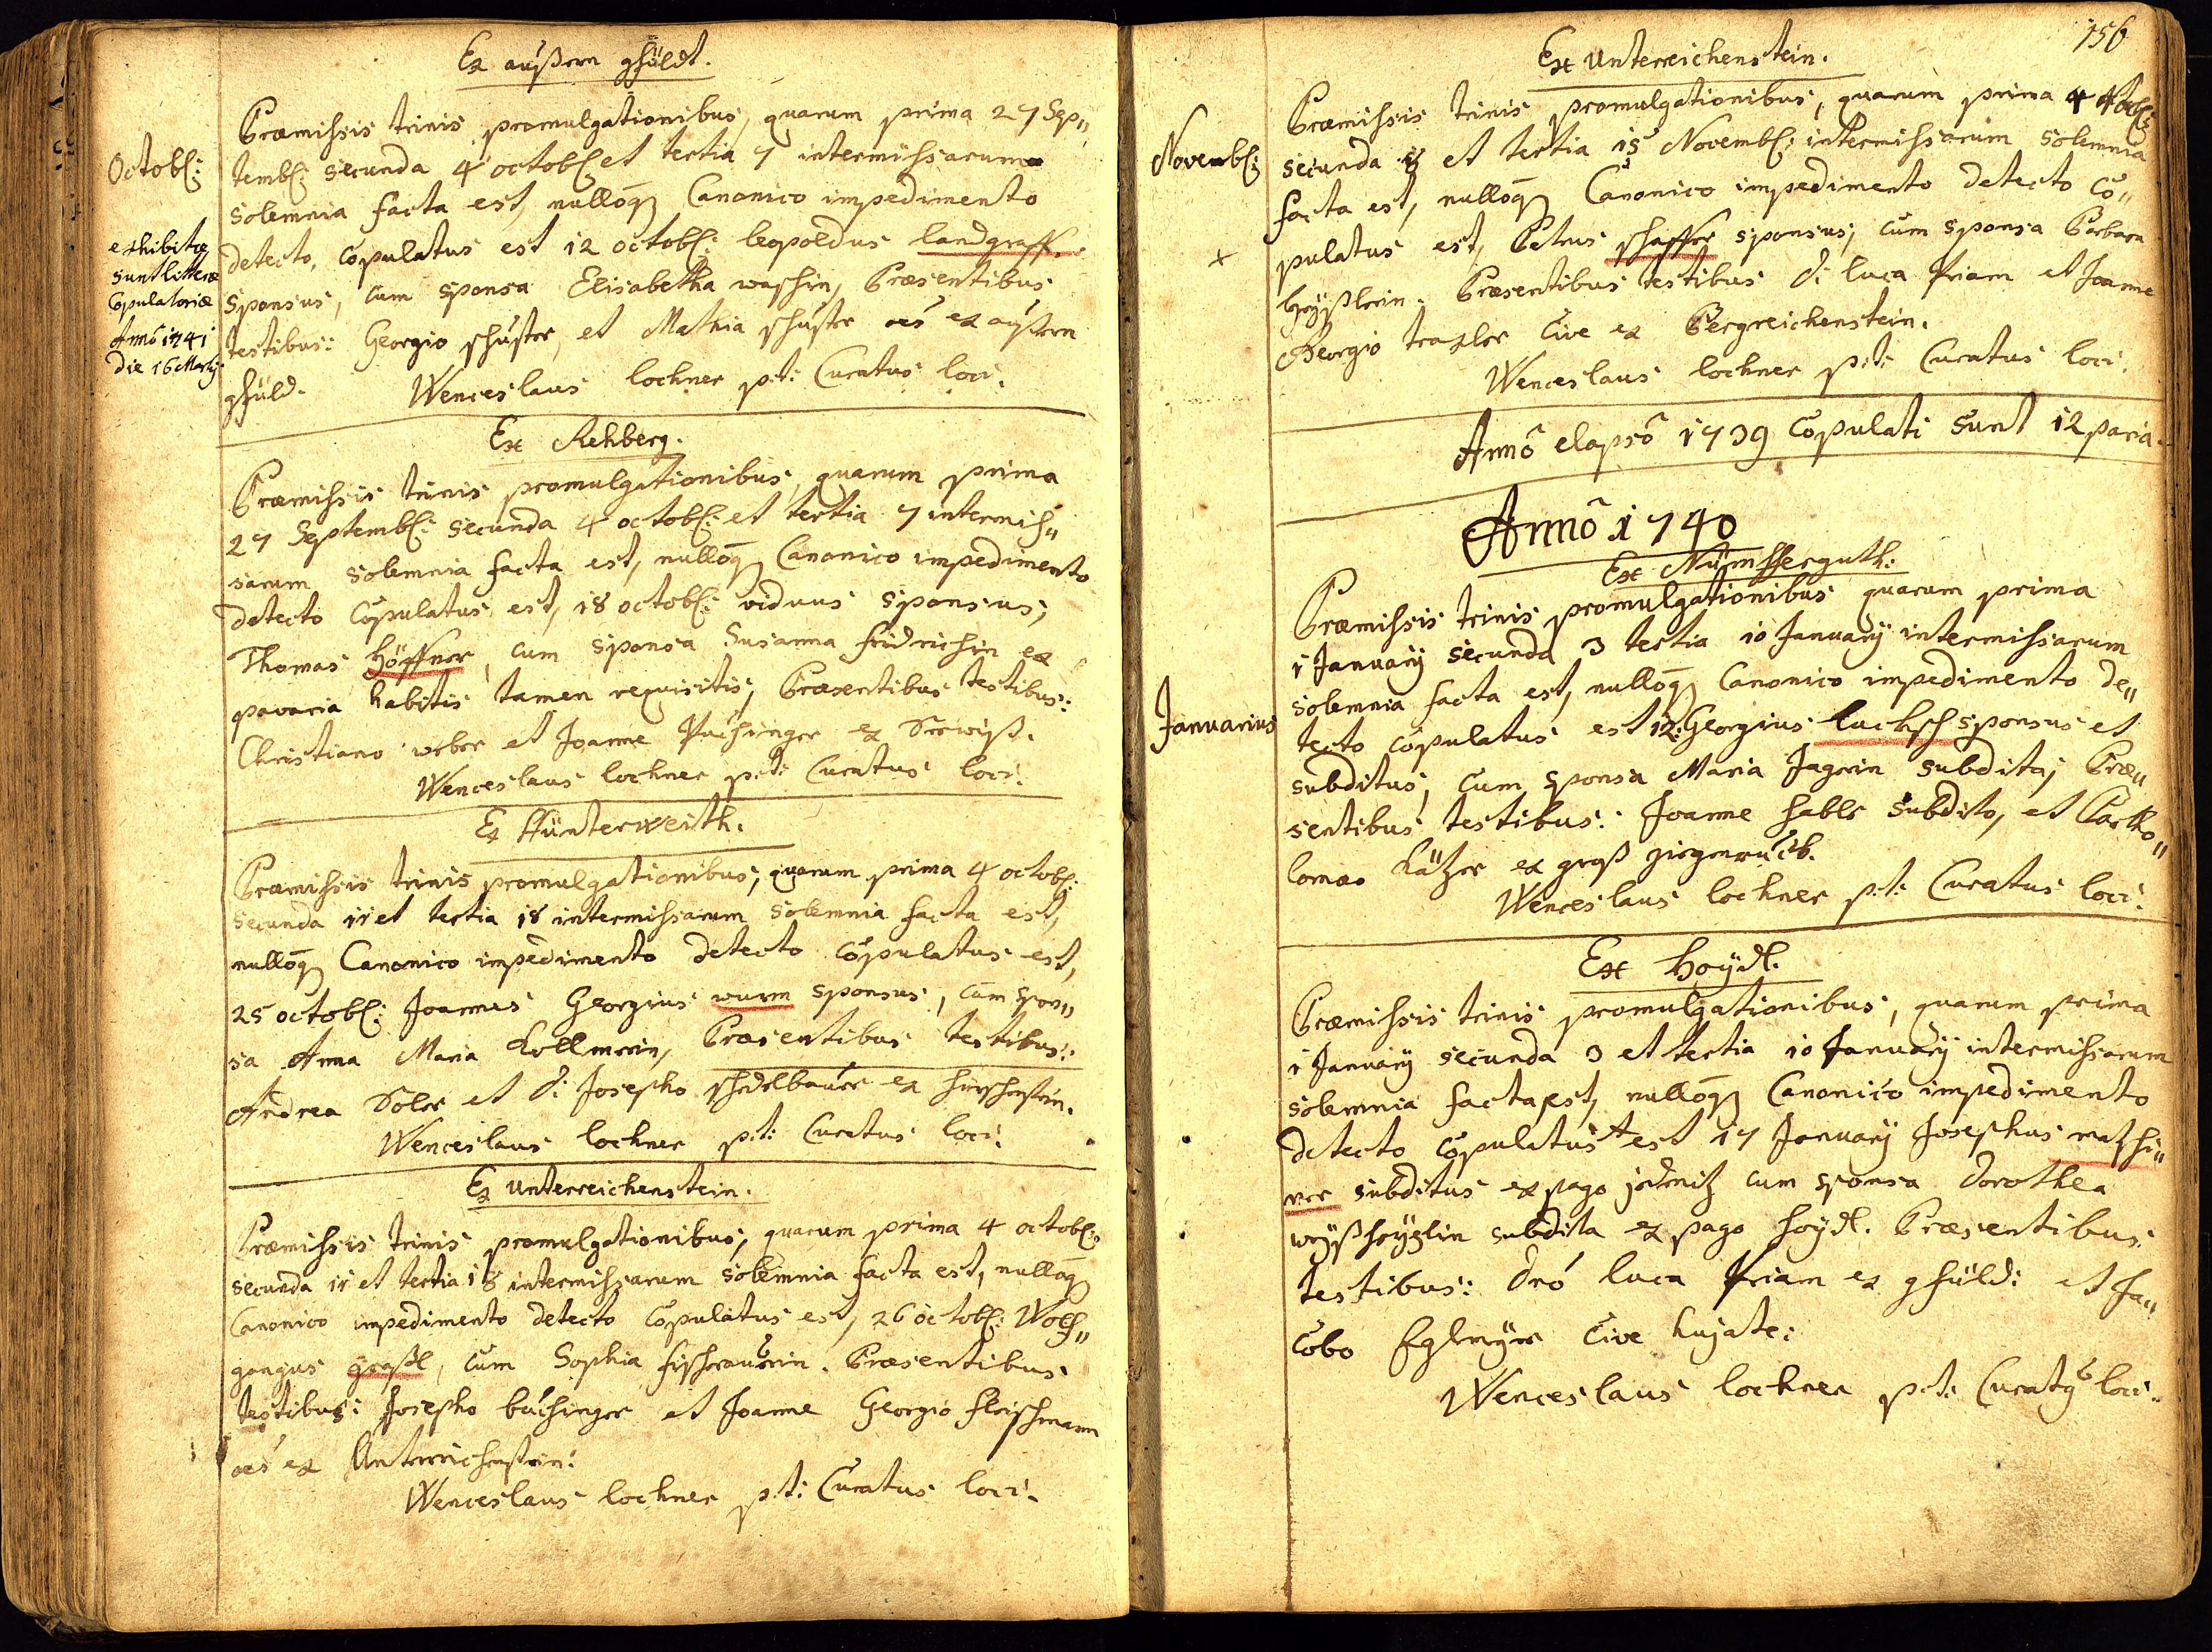 Ex außern gfüldt.
Octobl:
Præmissis trinis promulgationibus, quarum prima 27 Sep„
tembl: secunda 4 octobl: et tertia 7 intermissarum
solemnia facta est, nulloq3 Canonico impedimento
detecto, copulatus est 12 octobl: leopoldus landgraff.
sponsus, cum sponsa Elisabetha waschin, Præsentibus
testibus: Georgio schuster, et Mathia schuster oes ex außern
gfüld. Wenceslaus lochner p:t: Curatus loci.
exhibitæ
sunt litteræ
Copulatoriæ
Anno 1741
die 16 Martij
Ex Rehberg.
Præmissis trinis promulgationibus, quarum prima
27 Septembl: secunda 4 octobl: et tertia 7 intermis„
sarum solemnia facta est, nulloq3 Canonico impedimento
detecto Copulatus est, 18 octobl: viduus sponsus,
Thomas Höffner, cum sponsa Susanna fridrichin ex
pavaria habitis tamen requisitis, Præsentibus testibus:
Christiano weber et Joanne Puchinger ex Seewiß.
Wenceslaus lochner p:t: Curatus loci.
Ex Hünterweith.
Præmissis trinis promulgationibus, quarum prima 4 octobl:
secunda 11 et tertia 18 intermissarum solemnia facta est,
nulloq3 Canonico impedimento detecto copulatus est,
25 octobl: Joannes Georgius wurm sponsus, cum spon„
sa Anna Maria Kollmerin, Præsentibus testibus:
Andrea Soler et D: Josepho schedlbauer ex hirschenstein.
Wenceslaus lochner p:t: Curatus loci.
Ex Unterreichenstein.
Præmissis trinis promulgationibus, quarum prima 4 octobl:
secunda 11 et tertia 18 intermissarum solemnia facta est, nulloq3
Canonico impedimento detecto Copulatus est, 26 octobl: Wolf„
gangus graßl, cum Sophia Præsentibus
testibus: Josepho buchinger et Joanne Georgio fleischmann
oes ex Unterreichenstein:
Wenceslaus lochner p:t: Curatus loci.
156
Ex Unterreichenstein.
Novembl:
Præmissis trinis promulgationibus, quarum prima
secunda 8 et tertia 15 Novembl: intermissarum solemnia
facta est, nulloq3 Canonico impedimento detecto Co„
pulatus est, Petrus schaffer sponsus, cum sponsa Barbara
Præsentibus testibus D: luca Priam et Joanne
Georgio traxler Cive ex Bergreichenstein.
Wenceslaus lochner p:t: Curatus loci.
Anno elapso 1739 Copulati sunt 12 paria.
Anno 1740
Ex Nümsserguth:
Januarius
Præmissis trinis promulgationibus quarum prima
1 January secunda 3 tertia 10 January intermissarum
solemnia facta est, nulloq3 Canonico impedimento de„
tecto copulatus est 12: Georgius lucksch sponsus et
subditus, cum sponsa Maria Jagerin subdita, Præ„
sentibus testibus: Joanne habler subdito, et Bartho„
lomæo Kätzer ex groß zirgenruckh.
Wenceslaus lochner p:t: Curatus loci.
Ex Hoydl.
Præmissis trinis promulgationibus, quarum prima
1 January secunda 3 et tertia 10 January intermissarum
solemnia facta est, nulloq3 Canonico impedimento
detecto copulatus est 17 January Josephus matzhi„
ner subditus ex pago jedenitz cum sponsa Dorothea
subdita ex pago hoydl. Præsentibus
testibus: Dno luca Priam ex gfüld: et Ja„
Cobo Eglmyer Cive hujate:
Wenceslaus lochner p:t: Curatus loci.